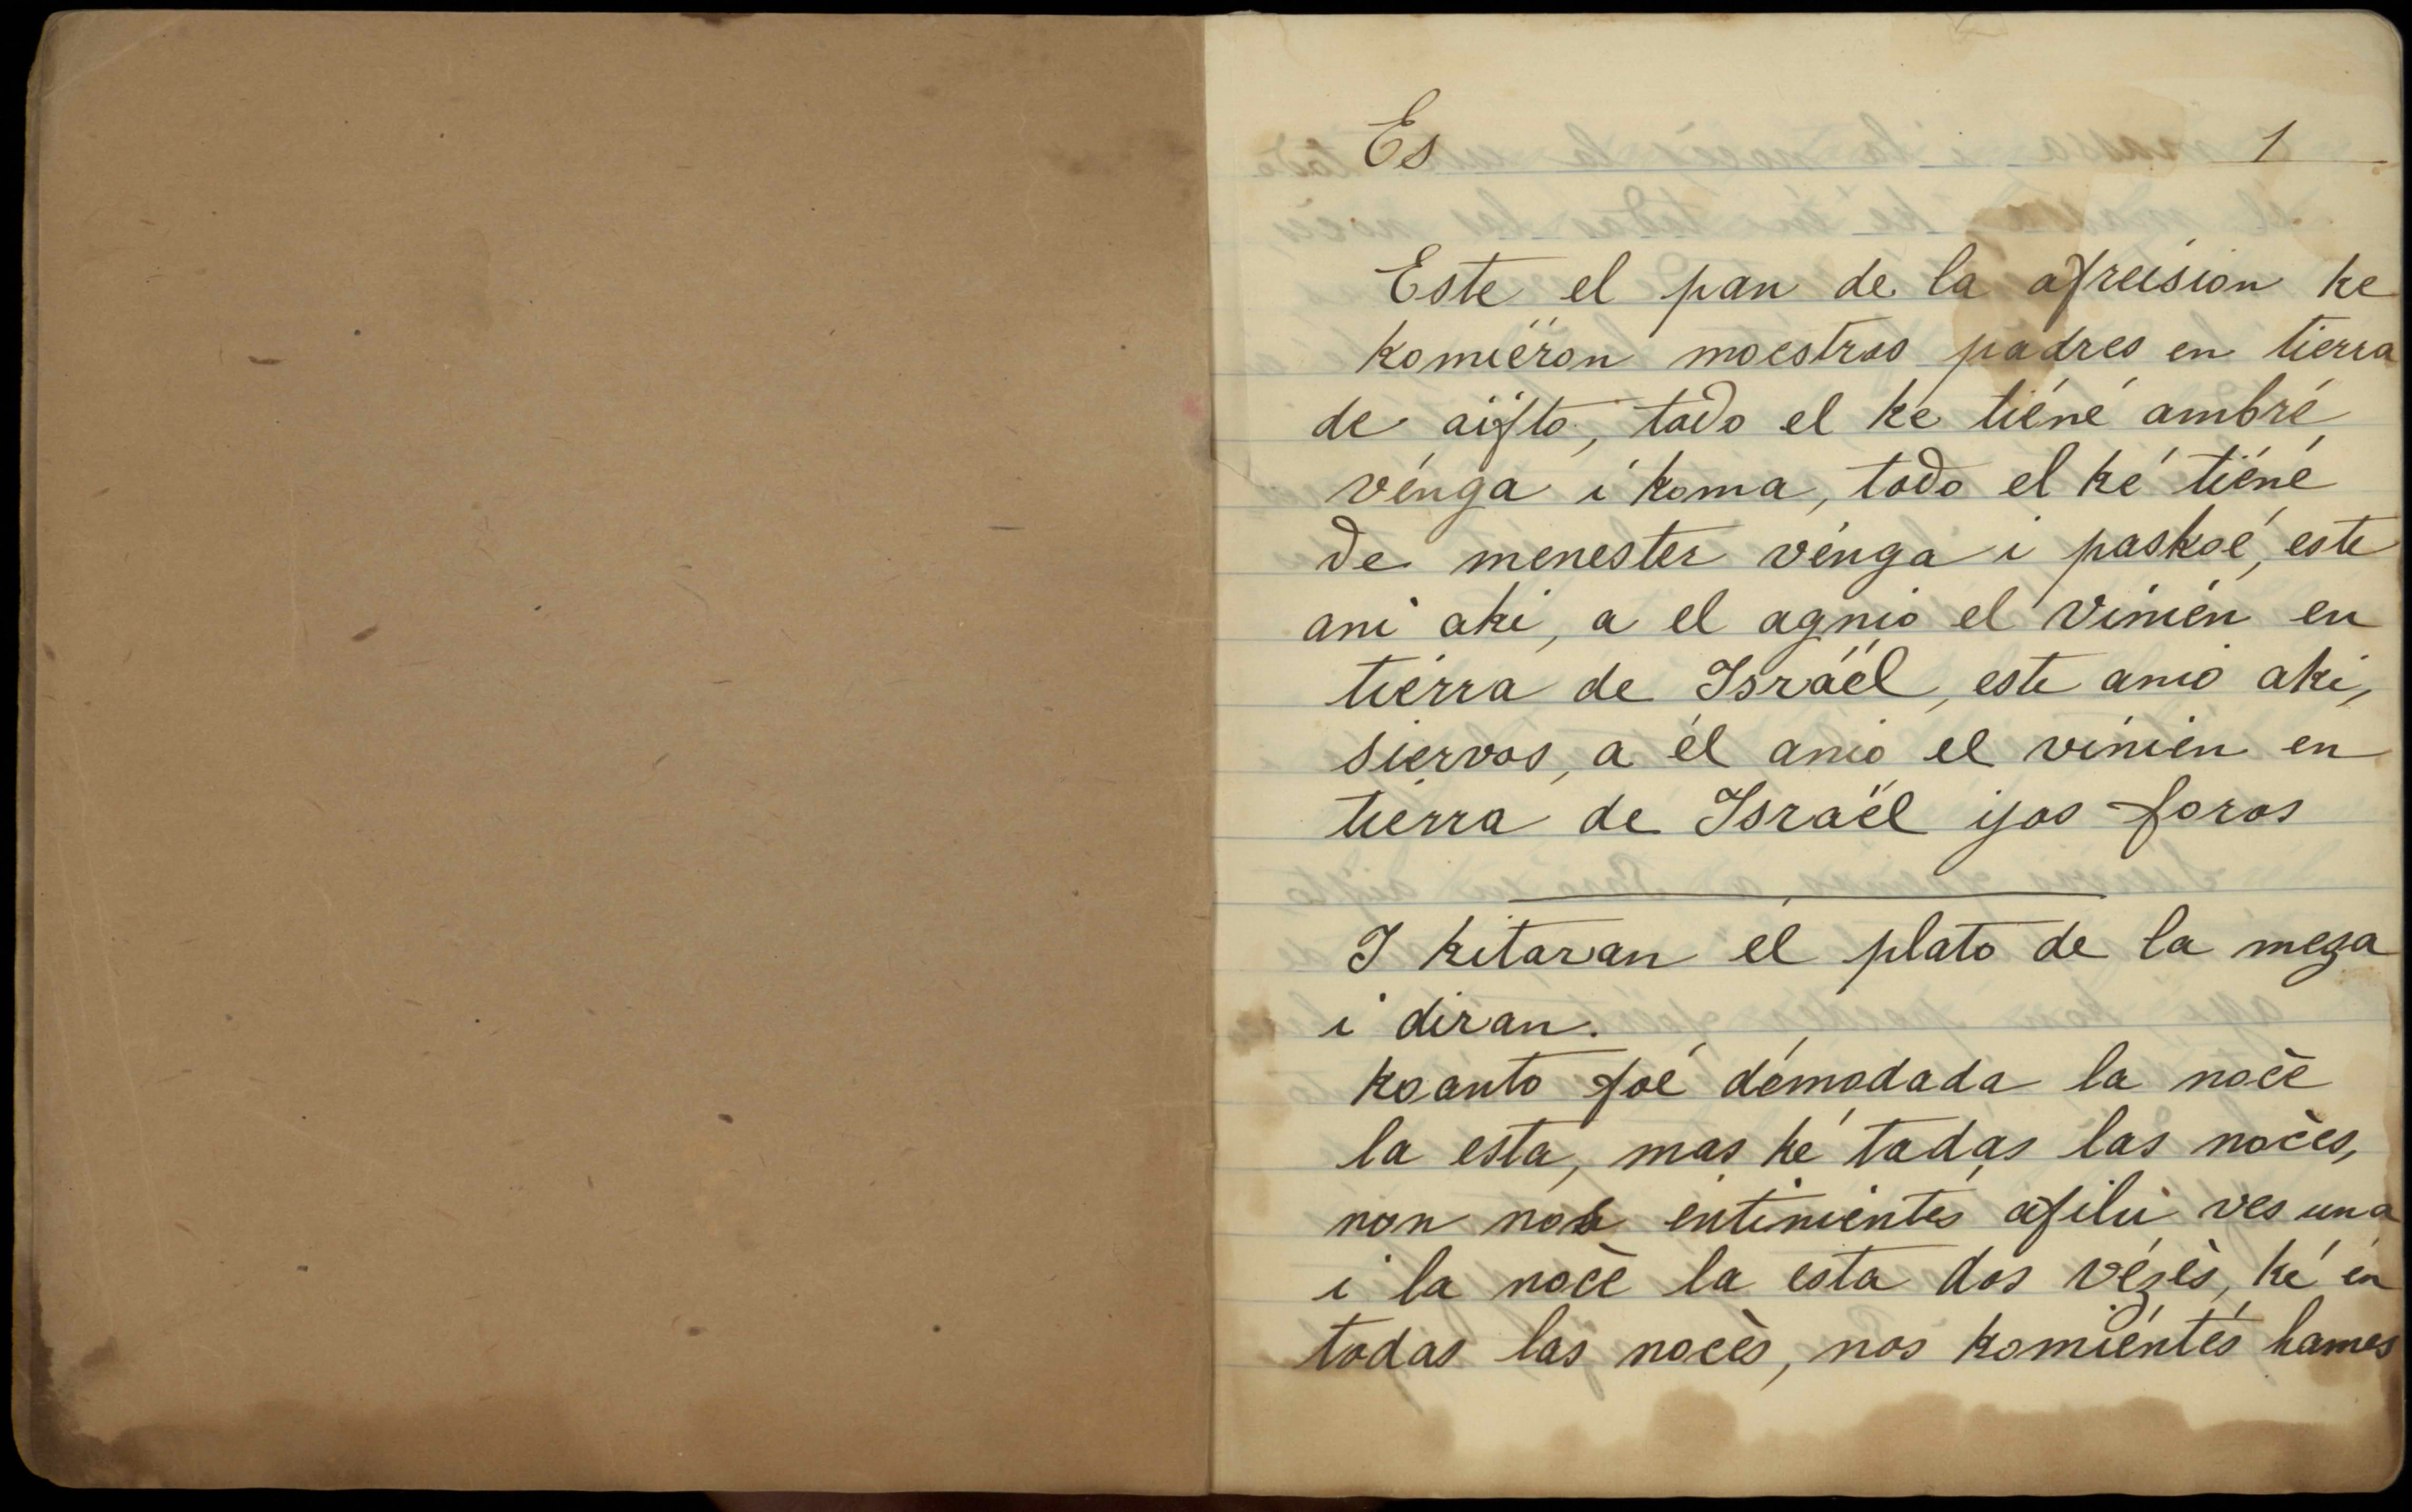 Es 1
Este el pan de la afreision ke
komiéron moestros padres en tierra
de aïfto, todo el ke tiéné ambré
vénga i koma, todo el ké tiéné
de menester vénga i paskoé, este
ani aki, a el agnio el vinién en
tiérra de Israël, este anio aki,
siervos, a él anio el vinién en
tiérra de Israël ijos foros
I kitaran el plato de la meza
i diran.
koanto foé démodada la nocè
la esta, mas ké todas las nocès,
non nos entinientes afilu ves una
i la nocè la esta dos vézès, ké én
todas las nocès, nos komiéntés hames